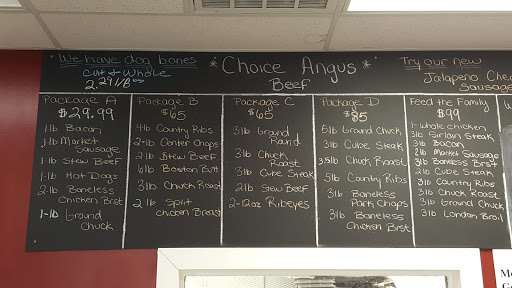 We have dog bones
Cut & Whole
2.29/lb
* Choice Angus *
Beef
Try our new
Jalapeno Chee
Sausage
Package A
$29.99
1 lb Bacon
1 lb Market
Sausage
1 lb Stew Beef
1 lb Hot Dogs
2 lb Boneless
Chicken Brst
1-lb Ground
Chuck
Package B
$65
4 lb Country Ribs
2-lb Center Chops
2 lb Stew Beef
6 lb Boston Butt
3 lb Chuck Roast
2 lb Split
Chicken Breast
Package C
$65
3 lb Ground
Round
3 lb Chuck
Roast
3 lb Cube Steak
2 lb Stew Beef
2-12oz Ribeyes
Package D
$85
5 lb Ground Chuck
3 lb Cube Steak
3.5 lb Chuck Roast
5 lb Country Ribs
3 lb Boneless
Pork Chops
3 lb Boneless
Chicken Brst
Feed the Family
$99
1-whole chicken
3 lb Sirloin Steak
3 lb Bacon
2 lb Market Sausage
3 lb Boneless Brst
2 lb Cube Steak
3 lb Country Ribs
3 lb Chuck Roast
3 lb Ground Chuck
3 lb London Broil